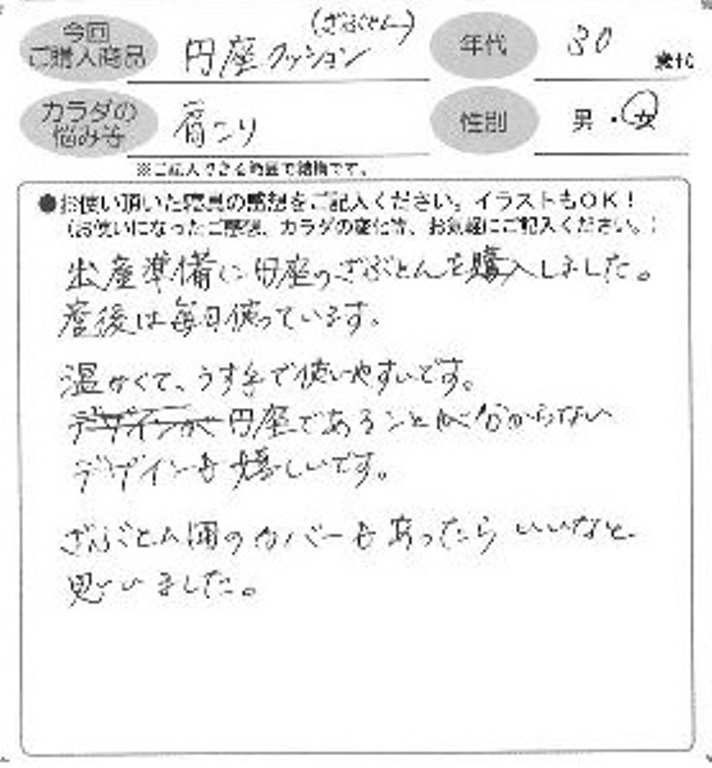 今回
ご購入商品
円座クッション
(ざぶとん)
年代
30
歳代
カラダの
悩み等
肩こり
性別
男・女
※ご記入できる範囲で結構です。
●お使い頂いた寝具の感想をご記入ください。イラストもOK！
(お使いになったご感想、カラダの変化等、お気軽にご記入ください。)
出産準備に円座のざぶとんを購入しました。
産後は毎日使っています。
温かくて、うす手で使いやすいです。
デザインが円座であることが分からない
デザインも嬉しいです。
ざぶとん用のカバーもあったらいいなと
思いました。